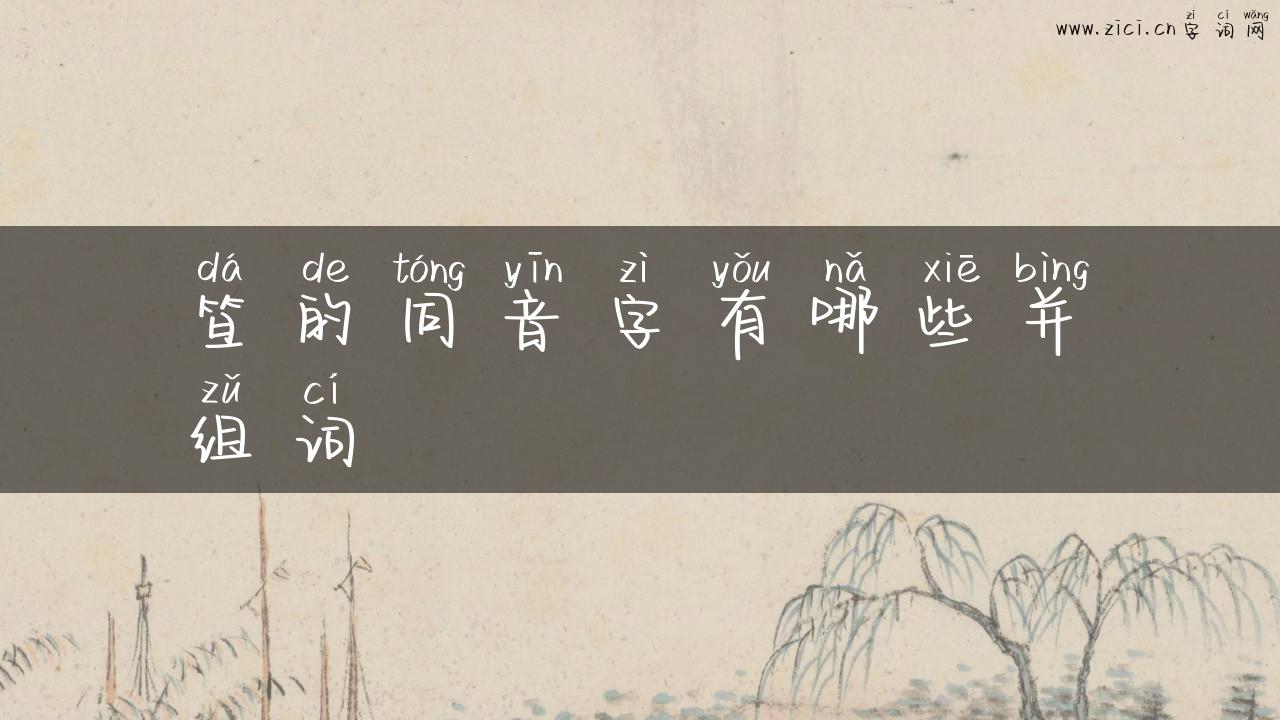 zì cí wǎng
www.zici.cn字词网
dá de tóng yīn zì yǒu nǎ xiē bìng
笪的同音字有哪些并
zǔ cí
组词